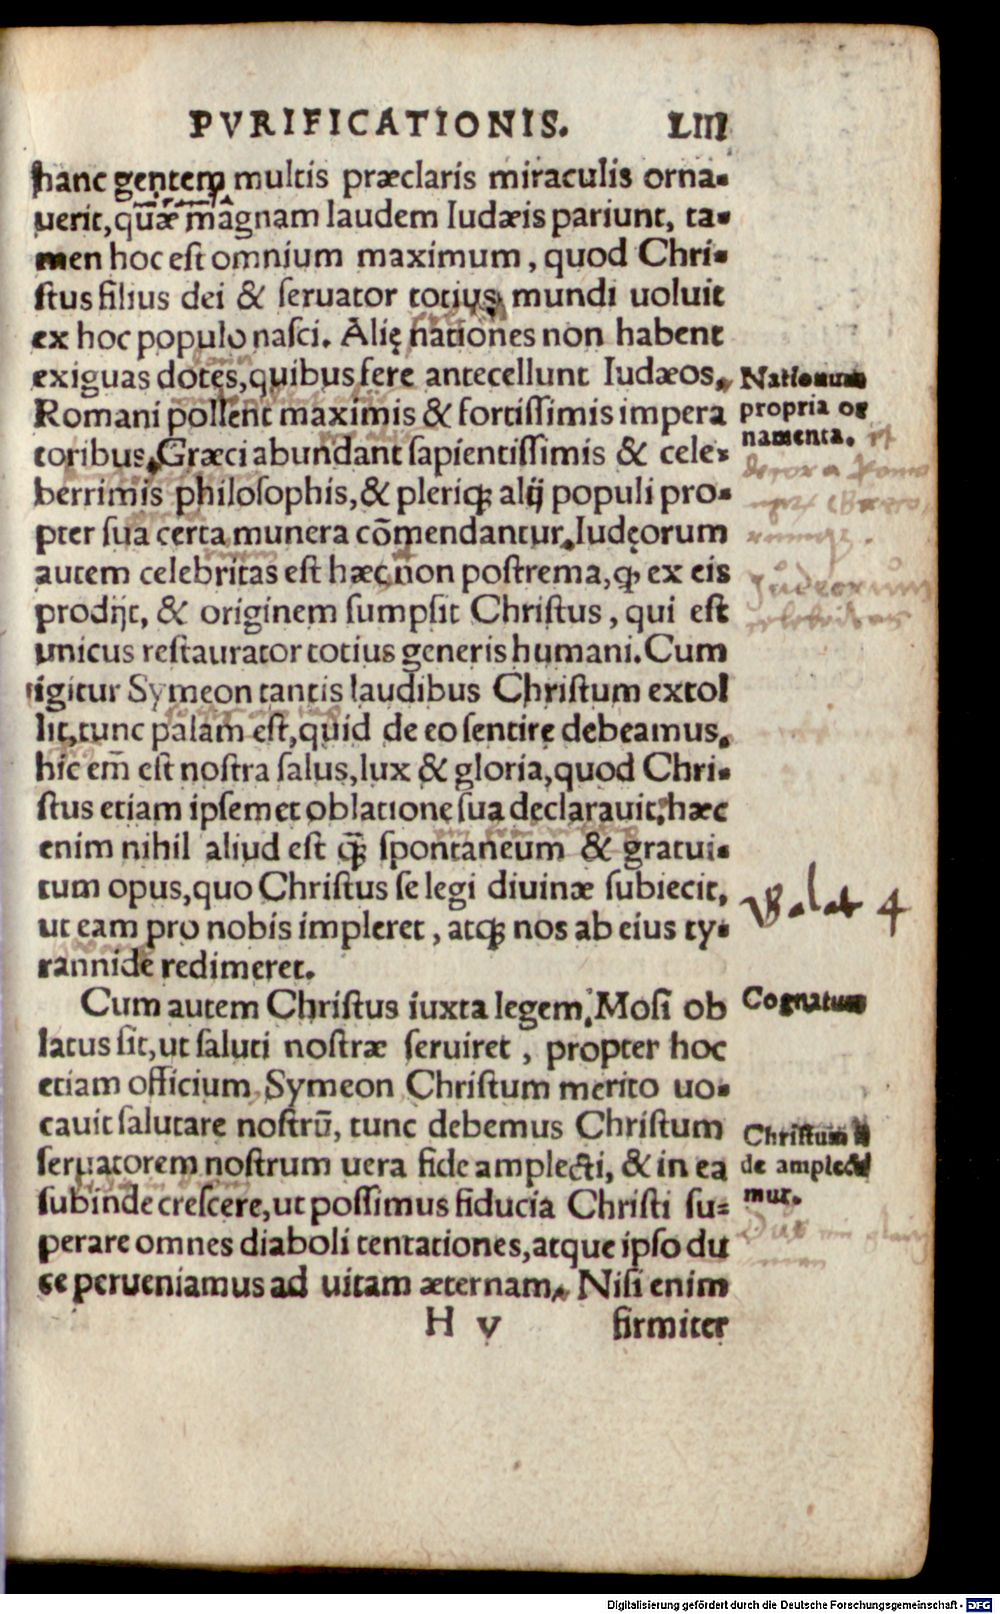 PVRIFICATIONIS. LIII
hanc gentem multis præclaris miraculis orna-
uerit, quæ magnam laudem Iudæis pariunt, ta-
men hoc est omnium maximum, quod Chri-
stus filius dei & seruator totius mundi uoluit
ex hoc populo nasci. Alię nationes non habent
exiguas dotes, quibus fere antecellunt Iudæos.
Romani pollent maximis & fortissimis impera
toribus. Græci abundant sapientissimis & cele-
berrimis philosophis, & pleriqꝫ alij populi pro-
pter sua certa munera cōmendantur. Iudęorum
autem celebritas est hæc non postrema, ꝙ ex eis
prodijt, & originem sumpsit Christus, qui est
unicus restaurator totius generis humani. Cum
igitur Symeon tantis laudibus Christum extol
lit, tunc palam est, quid de eo sentire debeamus.
hic em̄ est nostra salus, lux & gloria, quod Chri-
stus etiam ipsemet oblatione sua declarauit, hæc
enim nihil aliud est qꝫ̄ spontaneum & gratui-
tum opus, quo Christus se legi diuinæ subiecit,
ut eam pro nobis impleret, atqꝫ nos ab eius ty-
rannide redimeret.
Cum autem Christus iuxta legem Mosi ob
latus sit, ut saluti nostræ seruiret, propter hoc
etiam officium Symeon Christum merito uo-
cauit salutare nostrū, tunc debemus Christum
seruatorem nostrum uera fide amplecti, & in ea
subinde crescere, ut possimus fiducia Christi su-
perare omnes diaboli tentationes, atque ipso du
ce perueniamus ad uitam æternam. Nisi enim
H v firmiter
Nationum
propria or
namenta.
Judeorum
celebritas
Valet 4
Cognatum
Christum fi
de amplecta
mur.
Digitalisierung gefördert durch die Deutsche Forschungsgemeinschaft - DFG